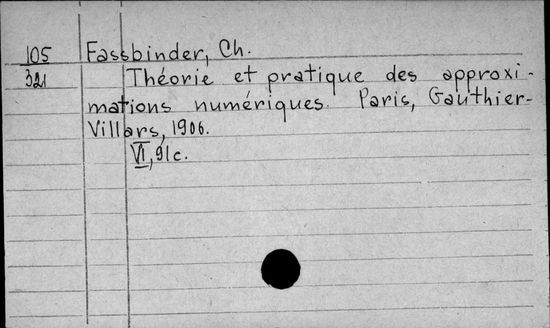 105 Fassbinder, Ch.
321 Théorie et pratique des approxi-
mations numériques. Paris, Gauthier-
Villars, 1906.
VI, 91c.